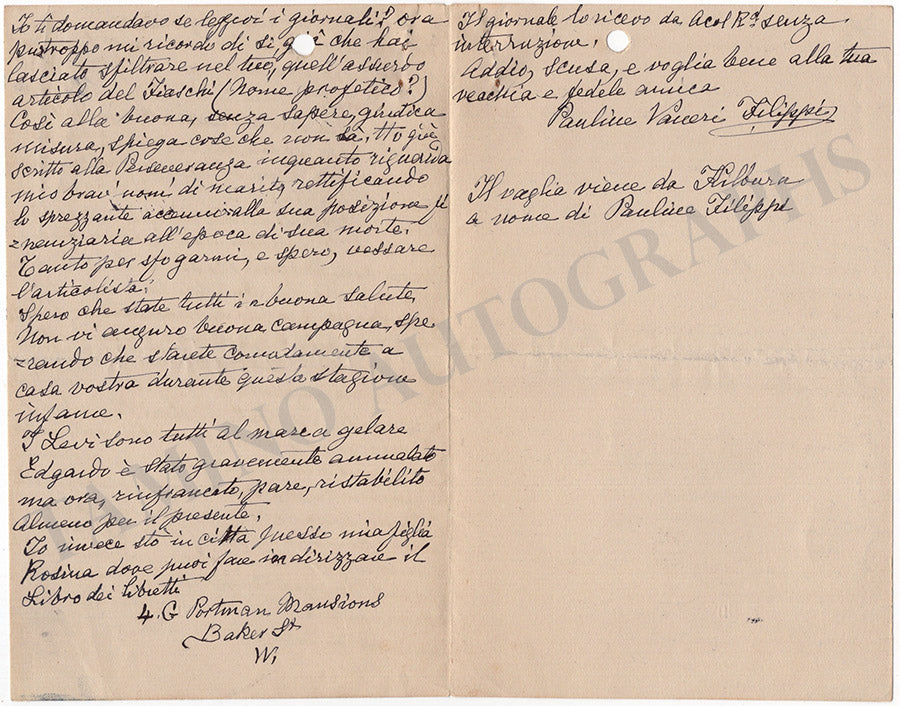 Io ti domandavo se leggevi i giornali? ora
purtroppo mi ricordo di si, che hai
lasciato sfiltrare nel tuo, quell'assurdo
articolo del Fiaschi (Nome profetico?)
Così alla buona, senza sapere, giudica
misura, spiega cose che non sa. Ho già
scritto alla Perseveranza inquanto riguarda
mio brav'uom' di marito, rettificando
lo sprezzante accenno alla sua posizione fi
=nenziaria all'epoca di sua morte.
Tanto per sfogarmi, e spero, vessare
l'articolista.
Spero che state tutti in buona salute,
Non vi auguro buona campagna, spe
=rando che starete comodamente a
casa vostra durante questa stagione
infame.
I Levi sono tutti al mare a gelare
Edgardo è stato gravemente ammalato
ma ora, rinfrancato, pare, ristabilito
Almeno per il presente.
Io invece sto in città presso mia figlia
Rosina dove puoi fare indirizzare il
Libro dei libretti
4. G Portman Mansions
Baker St
W.
Il giornale lo ricevo da Acol Rd senza
interruzione.
Addio, scusa, e voglia bene alla tua
vecchia e fedele amica
Pauline Vaneri Filippi
Il vaglia viene da Kilburn
a nome di Pauline Filippi
TAMINO AUTOGRAPHS